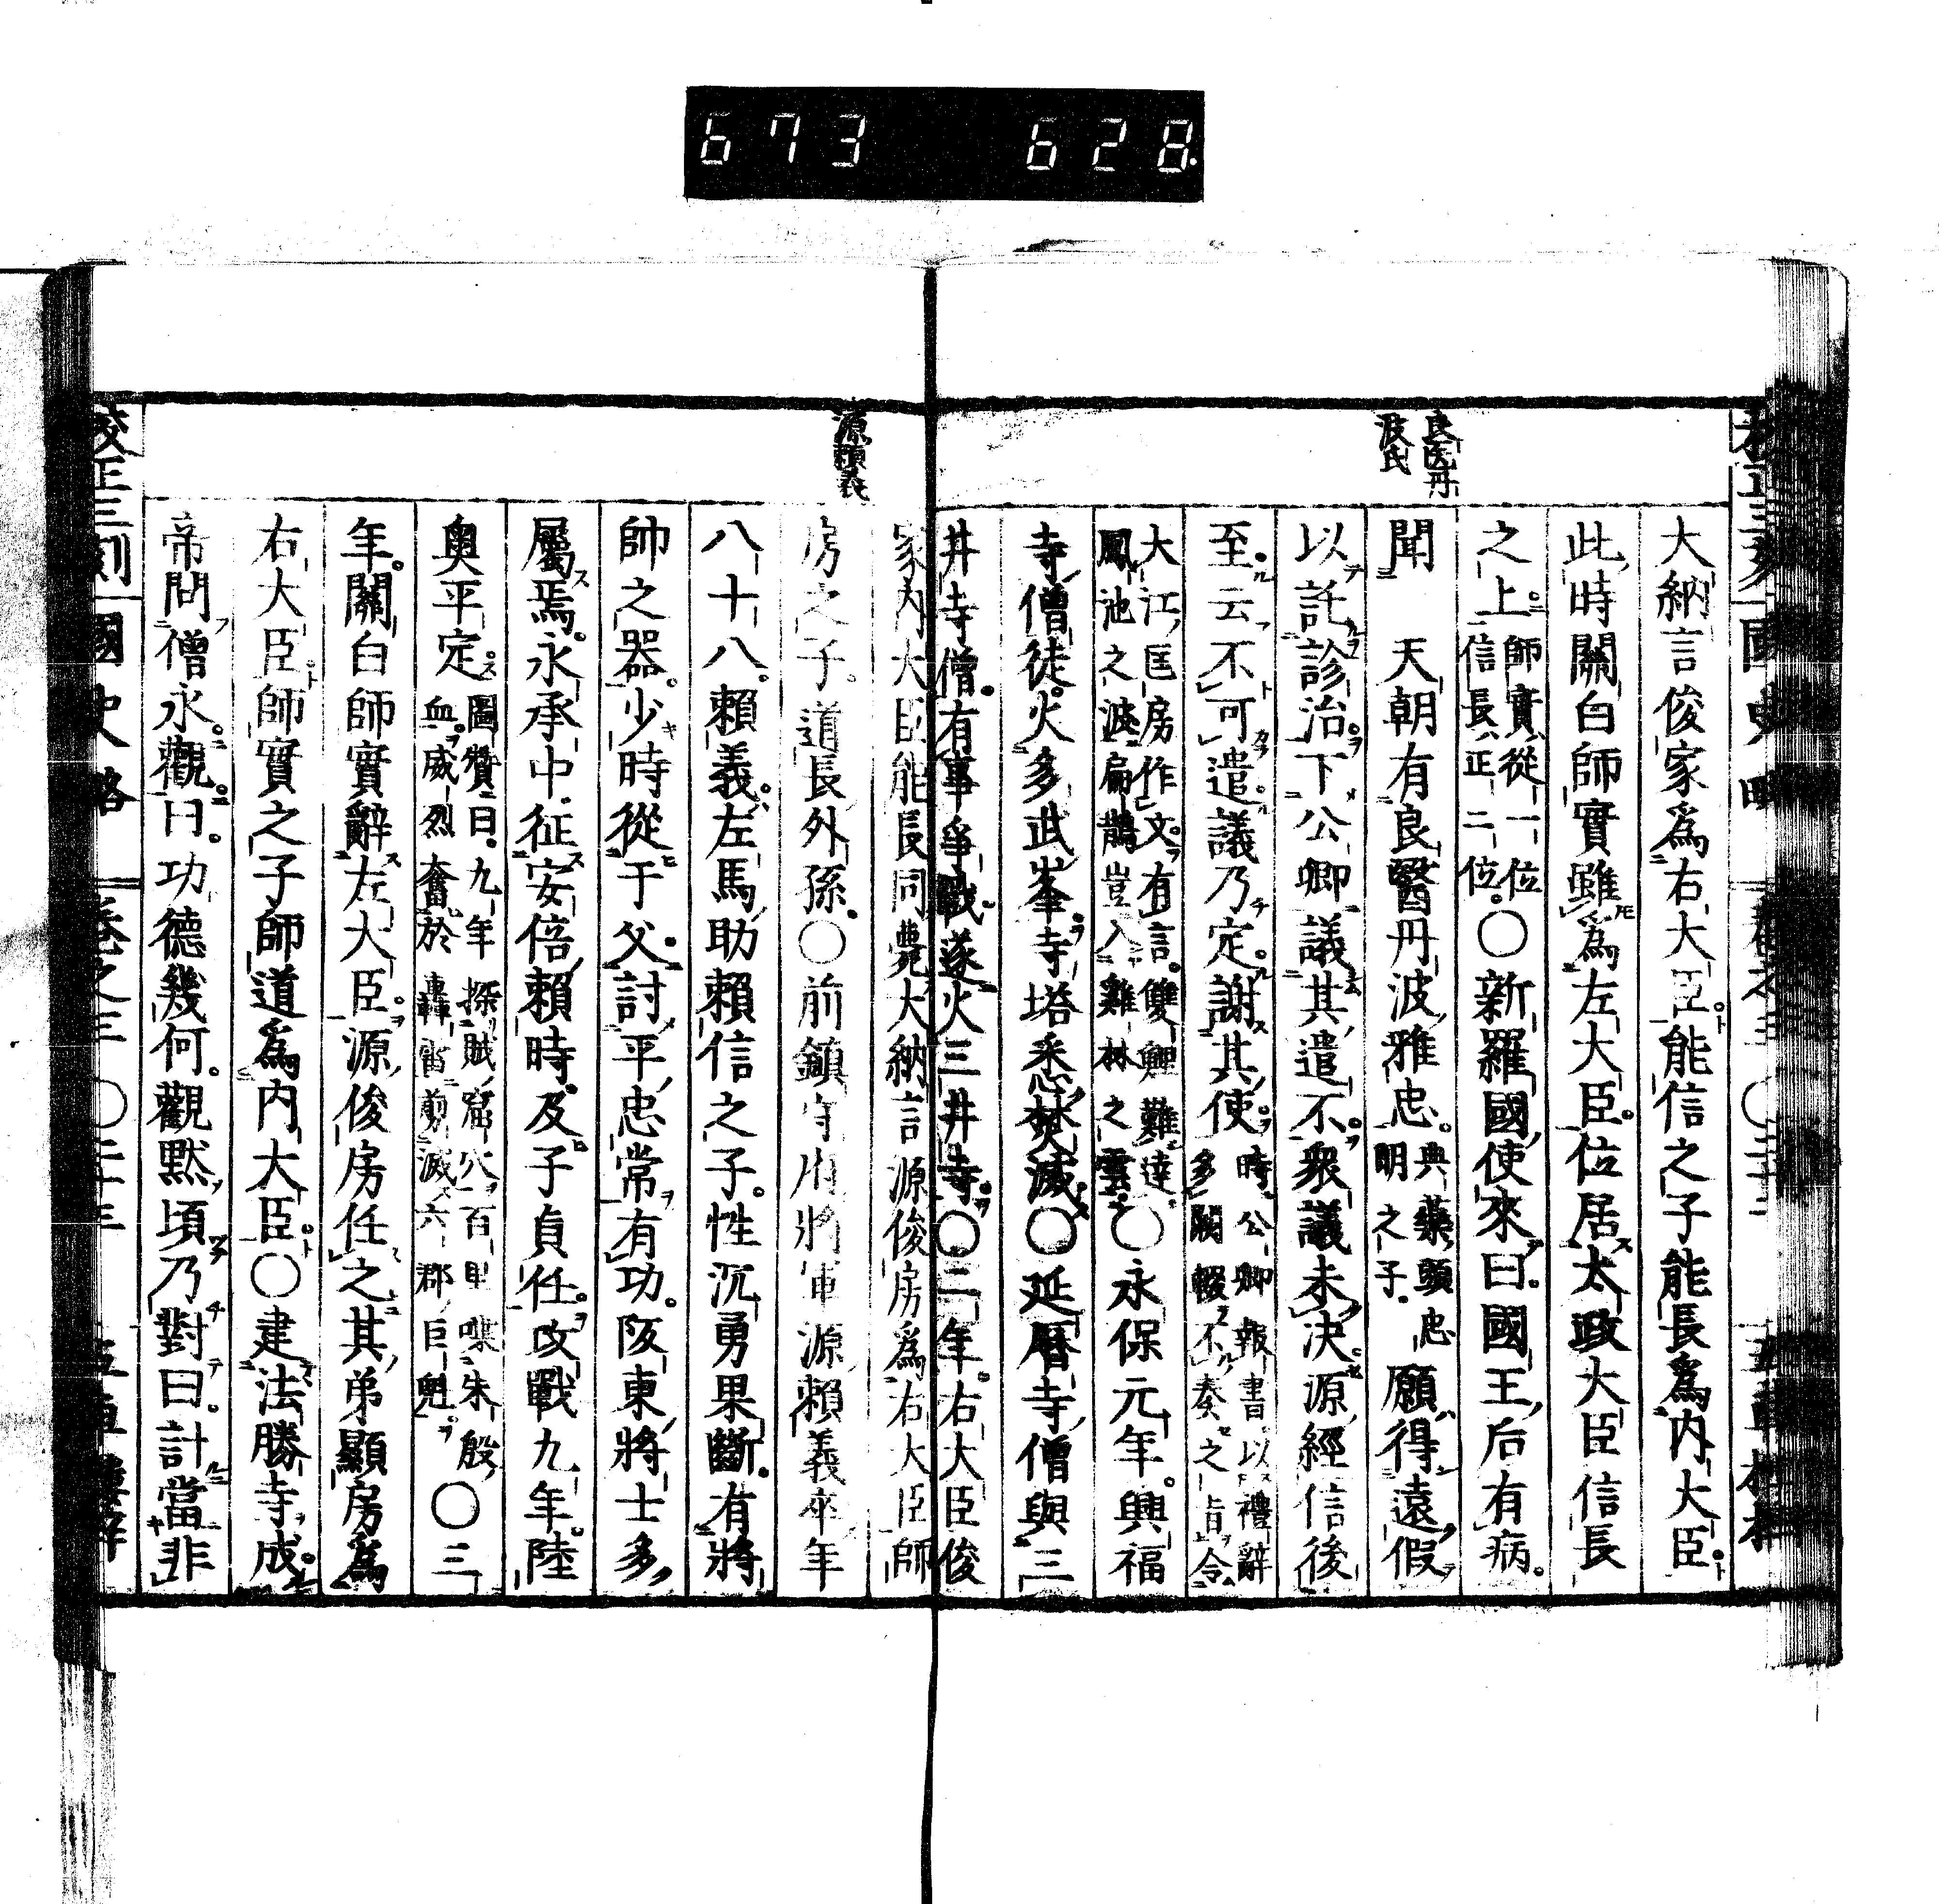 673 628.
良医丹
波氏
大納言俊家爲右大臣能信之子能長爲内大臣
此時關白師實雖爲左大臣位居太政大臣信長
之上師實從一位
信長正二位○新羅國使來曰國王后有病
聞　天朝有良醫丹波雅忠典藥頭忠
明之子願得遠假
以託診治下公卿議其遣不衆議未決源經信後
至云不可遣議乃定謝其使時公卿報書以禮辭
多闕輟不奏之旨令
大江匡房作文有言雙鯉難達
鳳池之波扁鵲豈入雞林之雲○永保元年興福
寺僧徒火多武峯寺塔悉焚滅○延暦寺僧與三
井寺僧有事爭戰遂火三井寺○二年右大臣俊
源頼義
家内大臣能長同薨大納言源俊房爲右大臣師
房之子道長外孫○前鎮守府將軍源頼義卒年
八十八頼義左馬助頼信之子性沉勇果斷有將
帥之器少時從于父討平忠常有功阪東將士多
屬焉永承中征安倍頼時及子貞任攻戰九年陸
奥平定圖贊曰九年探賊窟穴百里喋朱殷
血威烈奮於轟雷剪滅六郡巨魁○三
年關白師實辭左大臣源俊房任之其弟顯房爲
右大臣師實之子師道爲内大臣○建法勝寺成
帝問僧永觀曰功德幾何觀默頃乃對曰計當非
校正三刻國史略　卷之三○